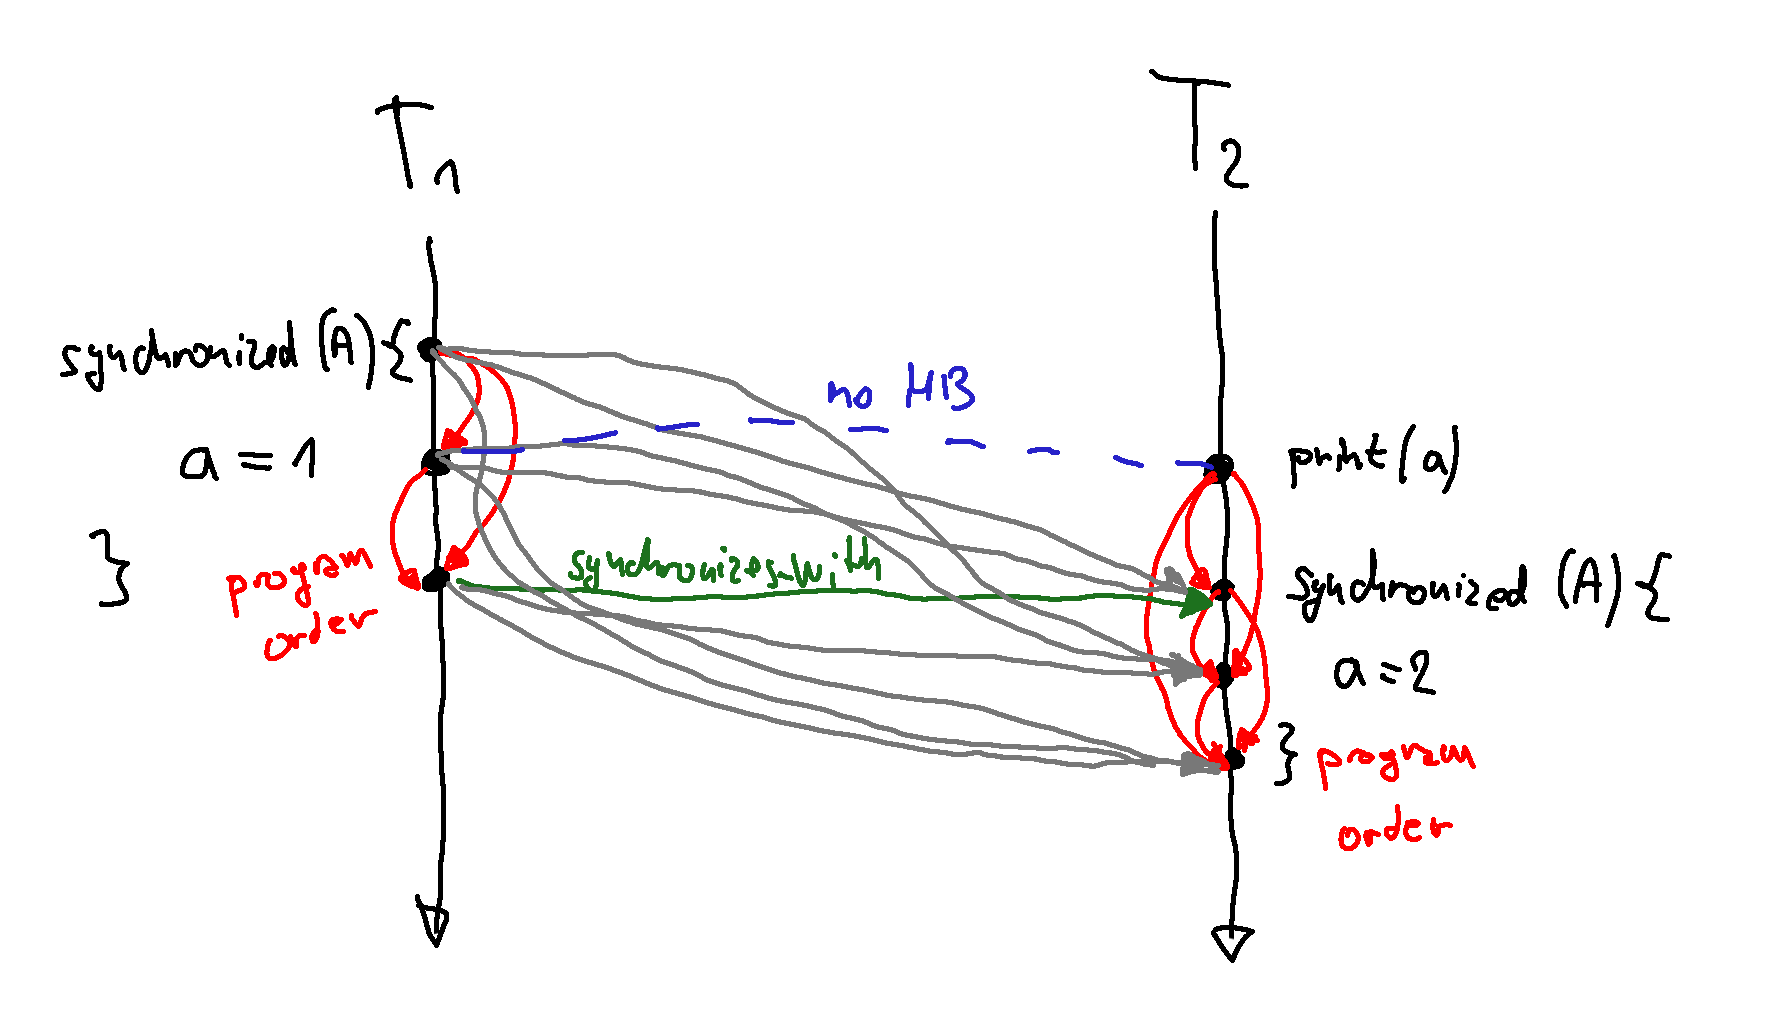 T1
T2
synchronized (A) {
a = 1
}
program
order
no HB
synchronizes-with
print(a)
synchronized (A) {
a = 2
}
program
order